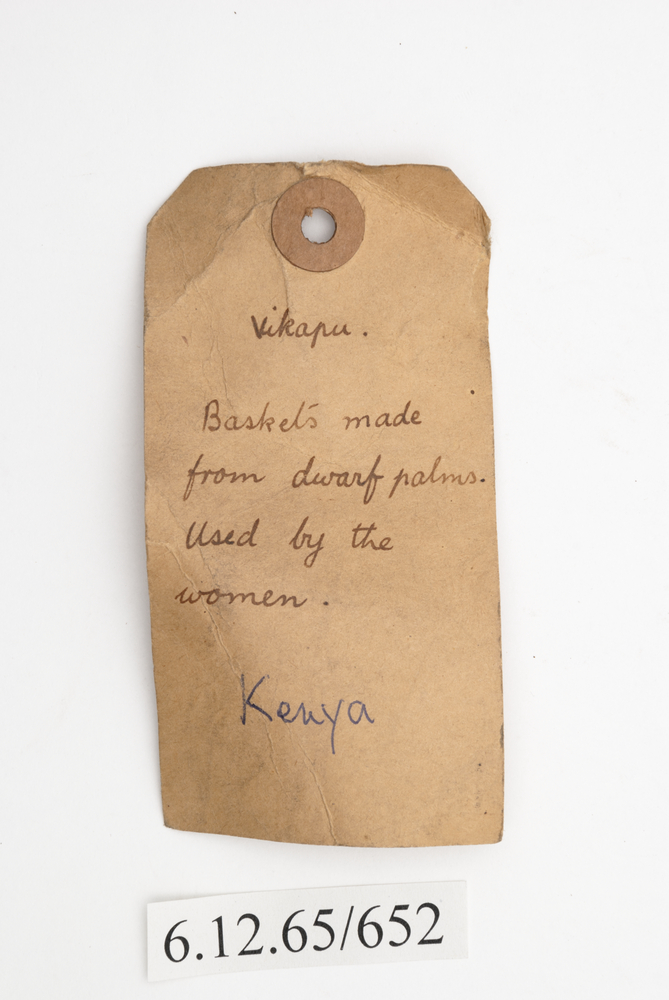 Vikapu.
Baskets made
from dwarf palms.
Used by the
women.
Kenya
6.12.65/652